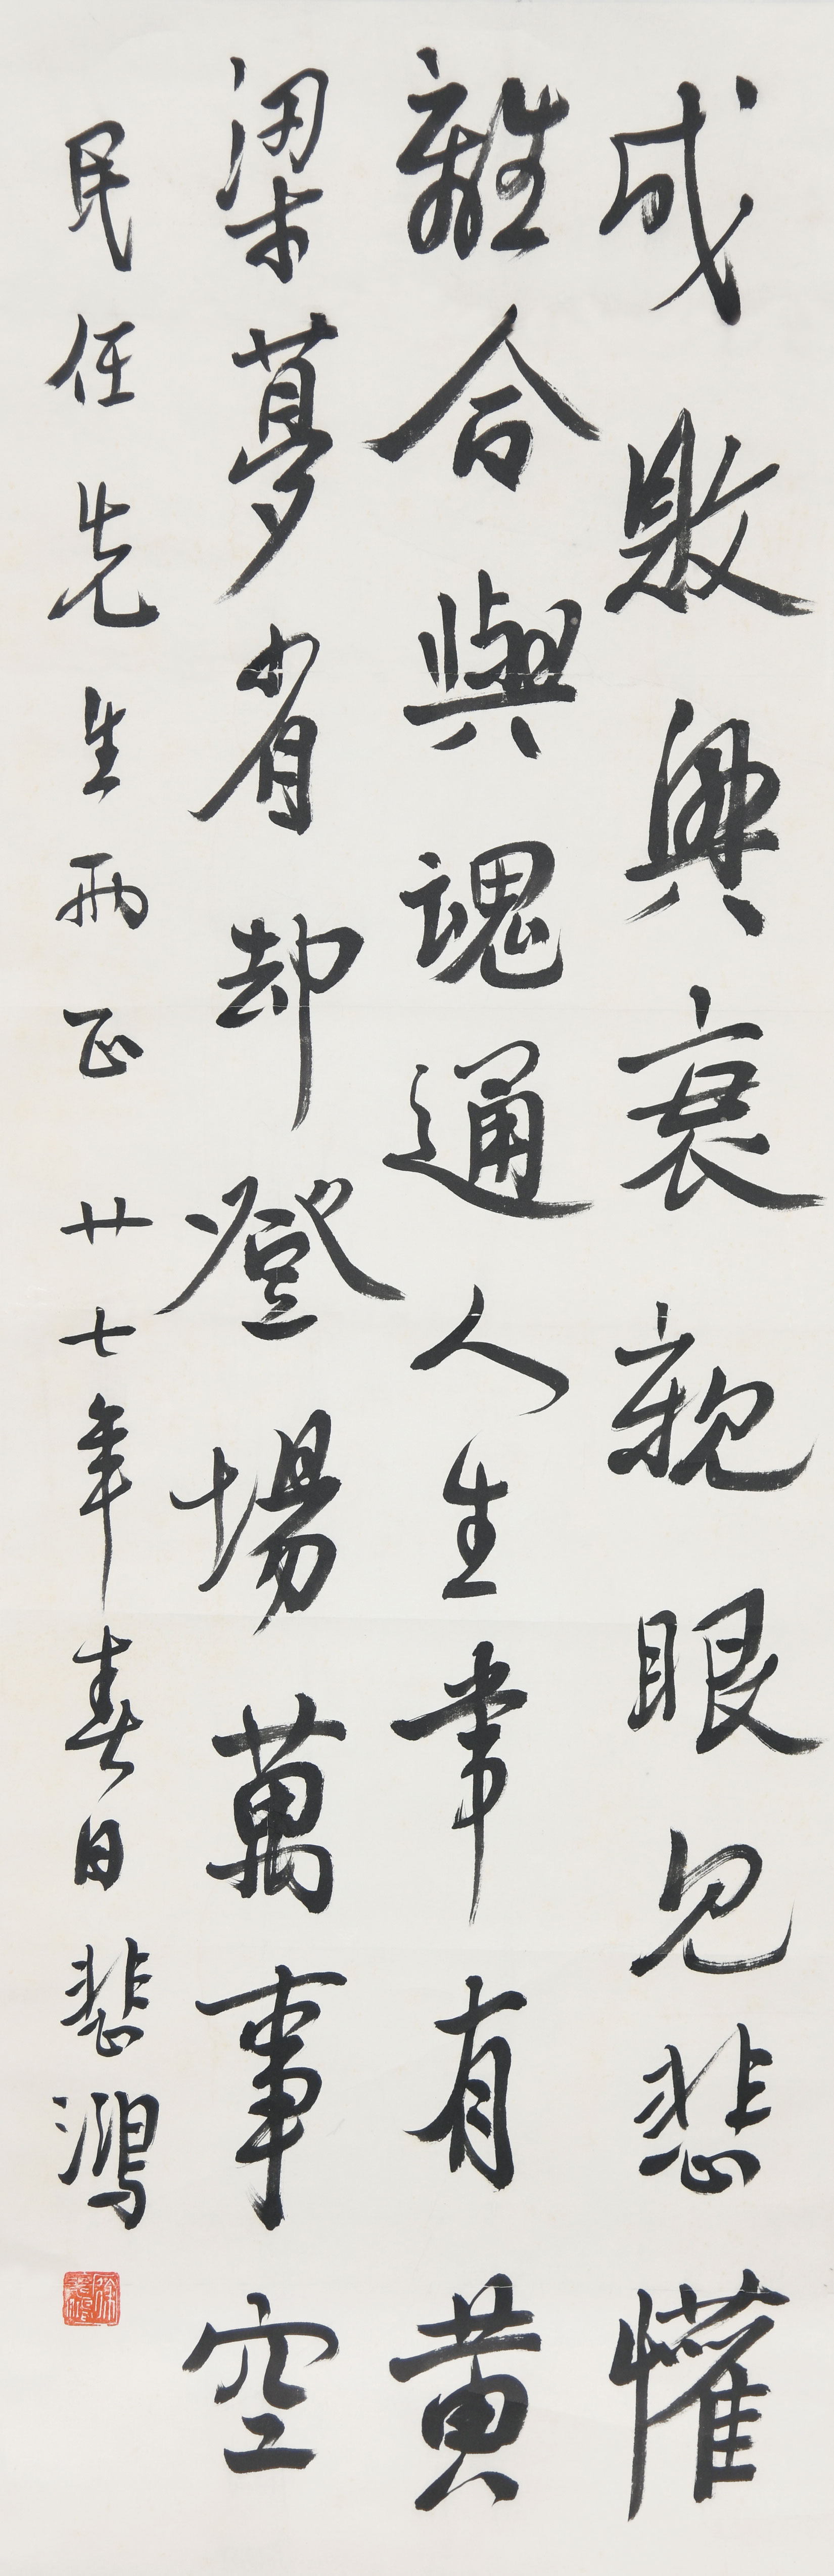 成敗興衰親眼見悲懽
離合與魂通人生常有黃
梁夢省却登場萬事空
民任先生兩正 廿七年春日悲鴻